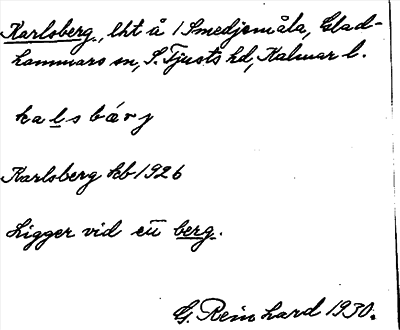 Karlsberg, lht å 1 Smedjemåla, Glad-
hammars sn, S. Tjusts hd, Kalmar l.
kalsbárj
Karlsberg kb 1926
Ligger vid ett berg.
G. Reinhard 1930.